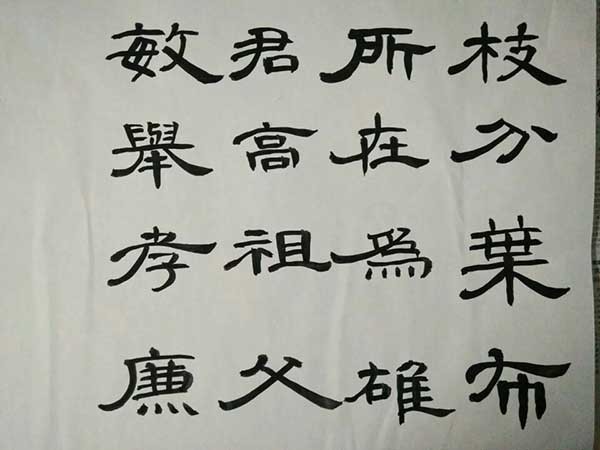 枝分葉布
所在為雄
君高祖父
敏舉孝廉